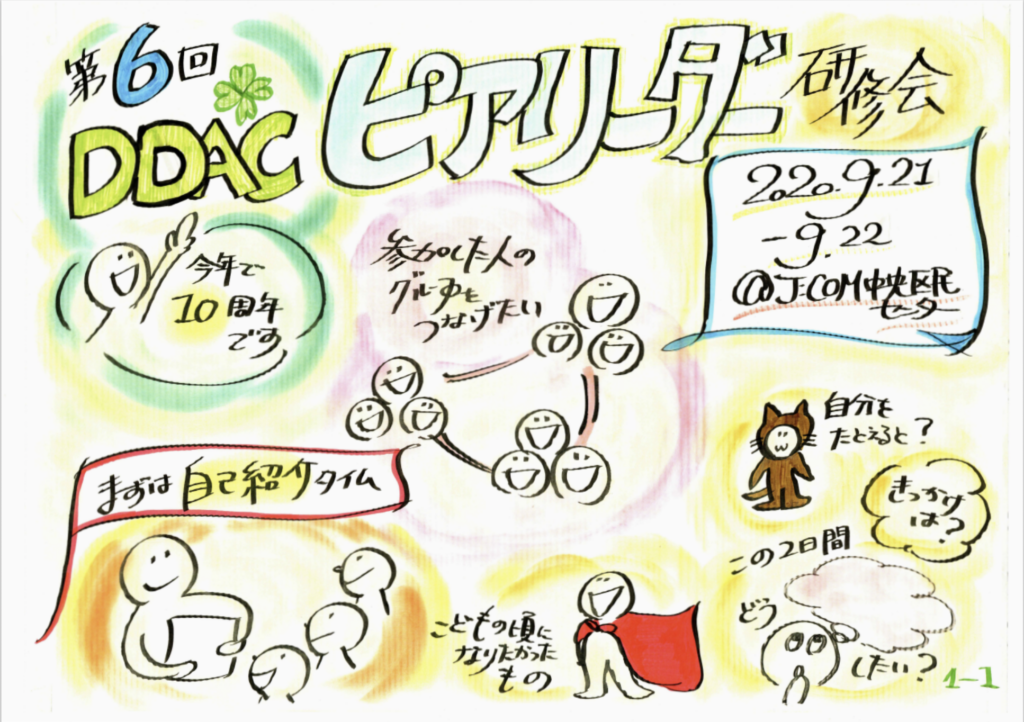 第6回
DDAC
ピアリーダー
研修会
2020.9.21
-9.22
@J:COM中央区民
センター
今年で
10周年
です
参加した人の
グループを
つなげたい
まずは自己紹介タイム
自分を
たとえると?
きっかけ
は?
この2日間
どう
したい?
こどもの頃に
なりたかった
もの
1-1